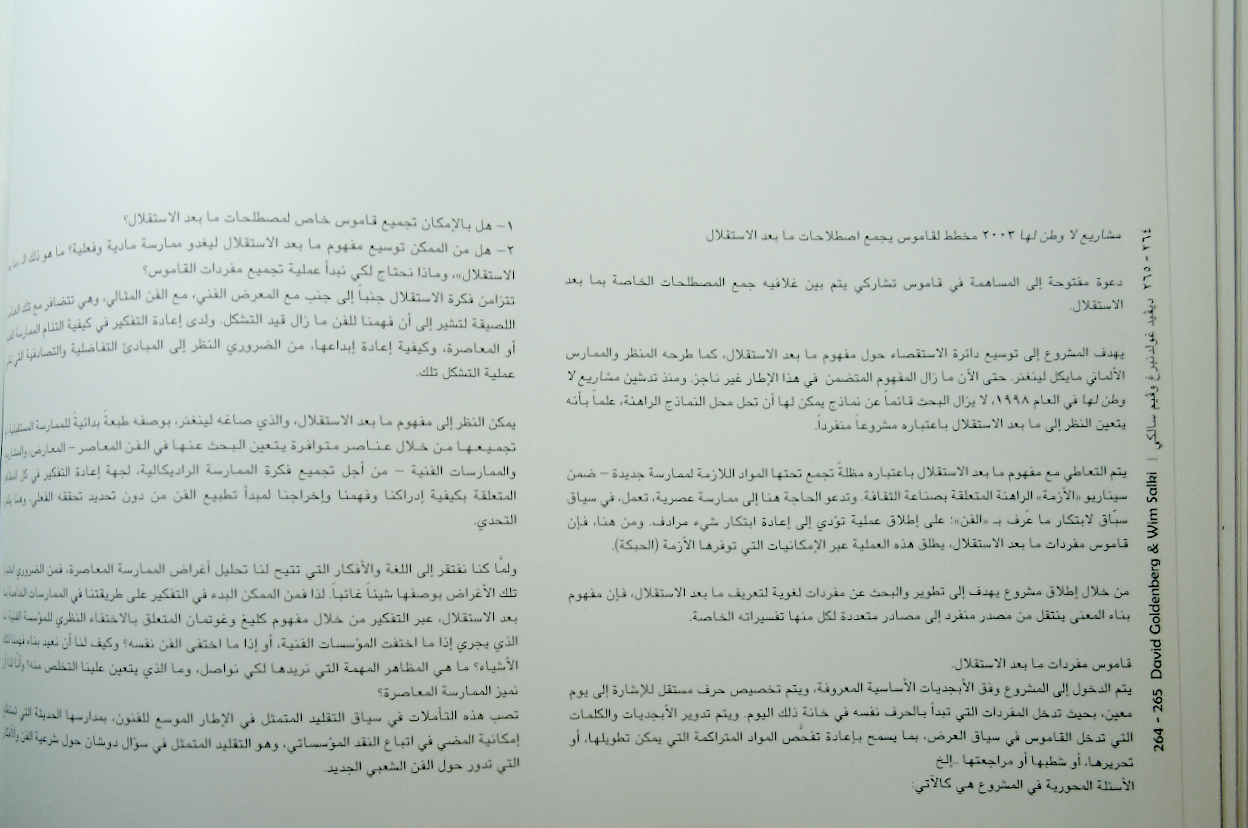 مشاريع لا وطن لها ٢٠٠٣ مخطط لقاموس يجمع اصطلاحات ما بعد الاستقلال
دعوة مفتوحة إلى المساهمة في قاموس تشاركي يتم بين غلافيه جمع المصطلحات الخاصة بما بعد
الاستقلال.
يهدف المشروع إلى توسيع دائرة الاستقصاء حول مفهوم ما بعد الاستقلال، كما طرحه المنظر والممارس
الألماني مايكل لينغنر. حتى الآن ما زال المفهوم المتضمن في هذا الإطار غير ناجز. ومنذ تدشين مشاريع لا
وطن لها في العام ١٩٩٨، لا يزال البحث قائماً عن نماذج يمكن لها أن تحل محل النماذج الراهنة، علماً بأنه
يتعين النظر إلى ما بعد الاستقلال باعتباره مشروعاً منفرداً.
يتم التعاطي مع مفهوم ما بعد الاستقلال باعتباره مظلةً تجمع تحتها المواد اللازمة لممارسة جديدة – ضمن
سيناريو «الأزمة» الراهنة المتعلقة بصناعة الثقافة. وتدعو الحاجة هنا إلى ممارسة عصرية، تعمل، في سياق
سبّاق لابتكار ما عُرف بـ «الفن»؛ على إطلاق عملية تؤدي إلى إعادة ابتكار شيء مرادف. ومن هنا، فإن
قاموس مفردات ما بعد الاستقلال، يطلق هذه العملية عبر الإمكانيات التي توفرها الأزمة (الحبكة).
من خلال إطلاق مشروع يهدف إلى تطوير والبحث عن مفردات لغوية لتعريف ما بعد الاستقلال، فإن مفهوم
بناء المعنى ينتقل من مصدر منفرد إلى مصادر متعددة لكل منها تفسيراته الخاصة.
قاموس مفردات ما بعد الاستقلال.
يتم الدخول إلى المشروع وفق الأبجديات الأساسية المعروفة، ويتم تخصيص حرف مستقل للإشارة إلى يوم
معين، بحيث تدخل المفردات التي تبدأ بالحرف نفسه في خانة ذلك اليوم. ويتم تدوير الأبجديات والكلمات
التي تدخل القاموس في سياق العرض، بما يسمح بإعادة تفحّص المواد المتراكمة التي يمكن تطويلها، أو
تحريرها، أو شطبها أو مراجعتها ..إلخ
الأسئلة المحورية في المشروع هي كالآتي:
١– هل بالإمكان تجميع قاموس خاص لمصطلحات ما بعد الاستقلال؟
٢– هل من الممكن توسيع مفهوم ما بعد الاستقلال ليغدو ممارسة مادية وفعلية؟ ما هو ذلك
الاستقلال»، وماذا نحتاج لكي نبدأ عملية تجميع مفردات القاموس؟
تتزامن فكرة الاستقلال جنباً إلى جنب مع المعرض الفني، مع الفن المثالي، وهي تتضافر مع تلك
اللصيقة لتشير إلى أن فهمنا للفن ما زال قيد التشكل. ولدى إعادة التفكير في كيفية التئام الممارسة
أو المعاصرة، وكيفية إعادة إبداعها، من الضروري النظر إلى المبادئ التفاضلية والتصادفية التي
عملية التشكل تلك.
يمكن النظر إلى مفهوم ما بعد الاستقلال، والذي صاغه لينغنر، بوصفه طبعةً بدائيةً للممارسة المستقبلية
تجميعها من خلال عناصر متوافرة يتعين البحث عنها في الفن المعاصر – المعارض، والمشاريع
والممارسات الفنية – من أجل تجميع فكرة الممارسة الراديكالية، لجهة إعادة التفكير في كل
المتعلقة بكيفية إدراكنا وفهمنا وإخراجنا لمبدأ تطبيع الفن من دون تحديد تحققه الفعلي، وهنا
التحدي.
ولمّا كنا نفتقر إلى اللغة والأفكار التي تتيح لنا تحليل أغراض الممارسة المعاصرة، فمن الضروري
تلك الأغراض بوصفها شيئاً غائباً. لذا فمن الممكن البدء في التفكير على طريقتنا في الممارسات الخاصة
بعد الاستقلال، عبر التفكير من خلال مفهوم كليغ وغوتمان المتعلق بالاختفاء النظري للمؤسسة الفنية
الذي يجري إذا ما اختفت المؤسسات الفنية، أو إذا ما اختفى الفن نفسه؟ وكيف لنا أن نعيد بناء فهمنا
الأشياء؟ ما هي المظاهر المهمة التي نريدها لكي نواصل، وما الذي يتعين علينا التخلص منه؟ وأنّا لنا
نميز الممارسة المعاصرة؟
تصب هذه التأملات في سياق التقليد المتمثل في الإطار الموسع للفنون، بمدارسها الحديثة التي
إمكانية المضي في اتباع النقد المؤسساتي، وهو التقليد المتمثل في سؤال دوشان حول شرعية الفن
التي تدور حول الفن الشعبي الجديد.
264 - 265 David Goldenberg & Wim Salki | ديڤيد غولدنبرغ وڤيم سالكي ٢٦٥ - ٢٦٤